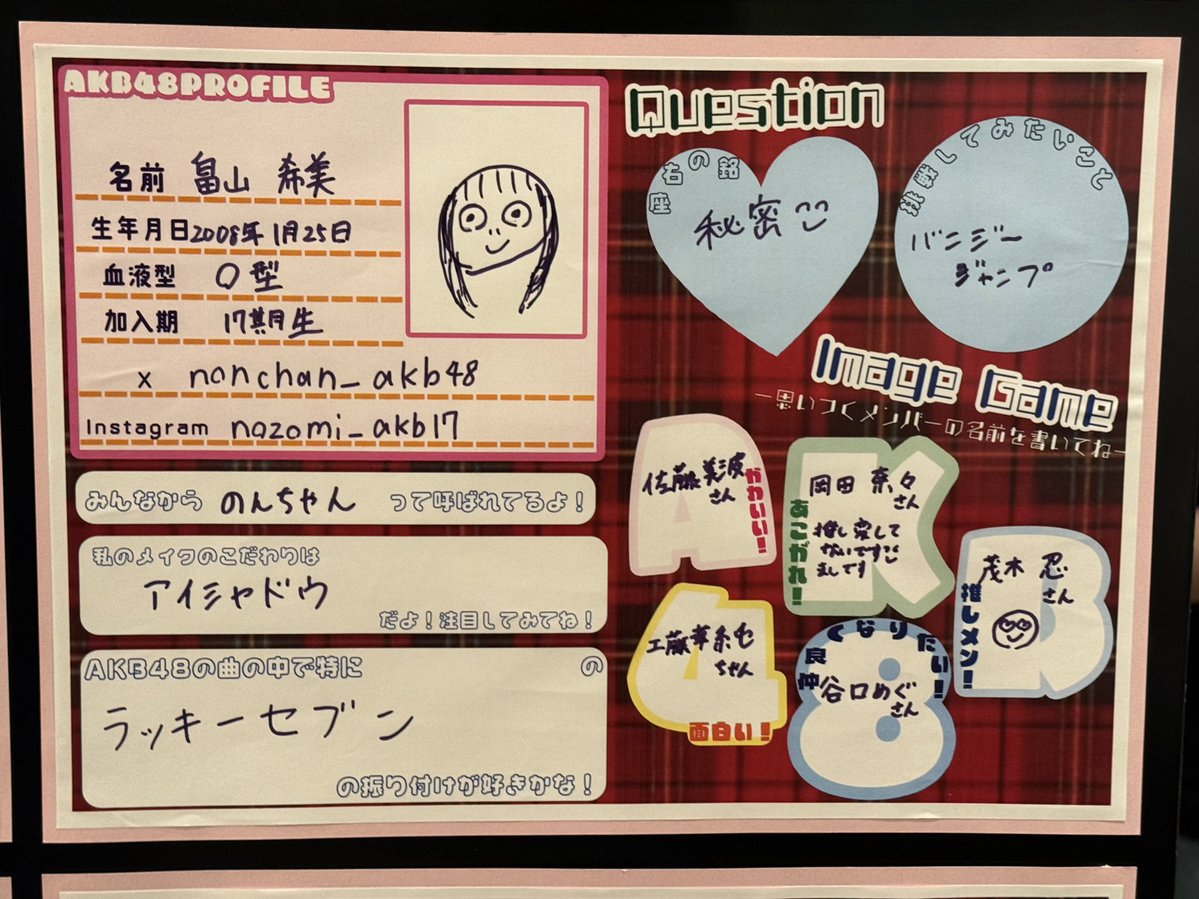 AKB48PROFILE
名前 畠山 希美
生年月日 2008年1月25日
血液型 O型
加入期 17期生
X nonchan_akb48
Instagram nozomi_akb17
みんなから のんちゃん って呼ばれてるよ！
私のメイクのこだわりは
アイシャドウ
だよ！注目してみてね！
AKB48の曲の中で特に の
ラッキーセブン
の振り付けが好きかな！
Question
座右の銘
秘密
挑戦してみたいこと
バンジー
ジャンプ
Image Game
ー思いつくメンバーの名前を書いてねー
佐藤美波
さん
かわいい！
岡田 奈々
さん
推し変して
ないです
ましです
あこがれ！
茂木 忍
さん
推しメン！
工藤華純
ちゃん
面白い！
仲良くなりたい！
谷口めぐ
さん